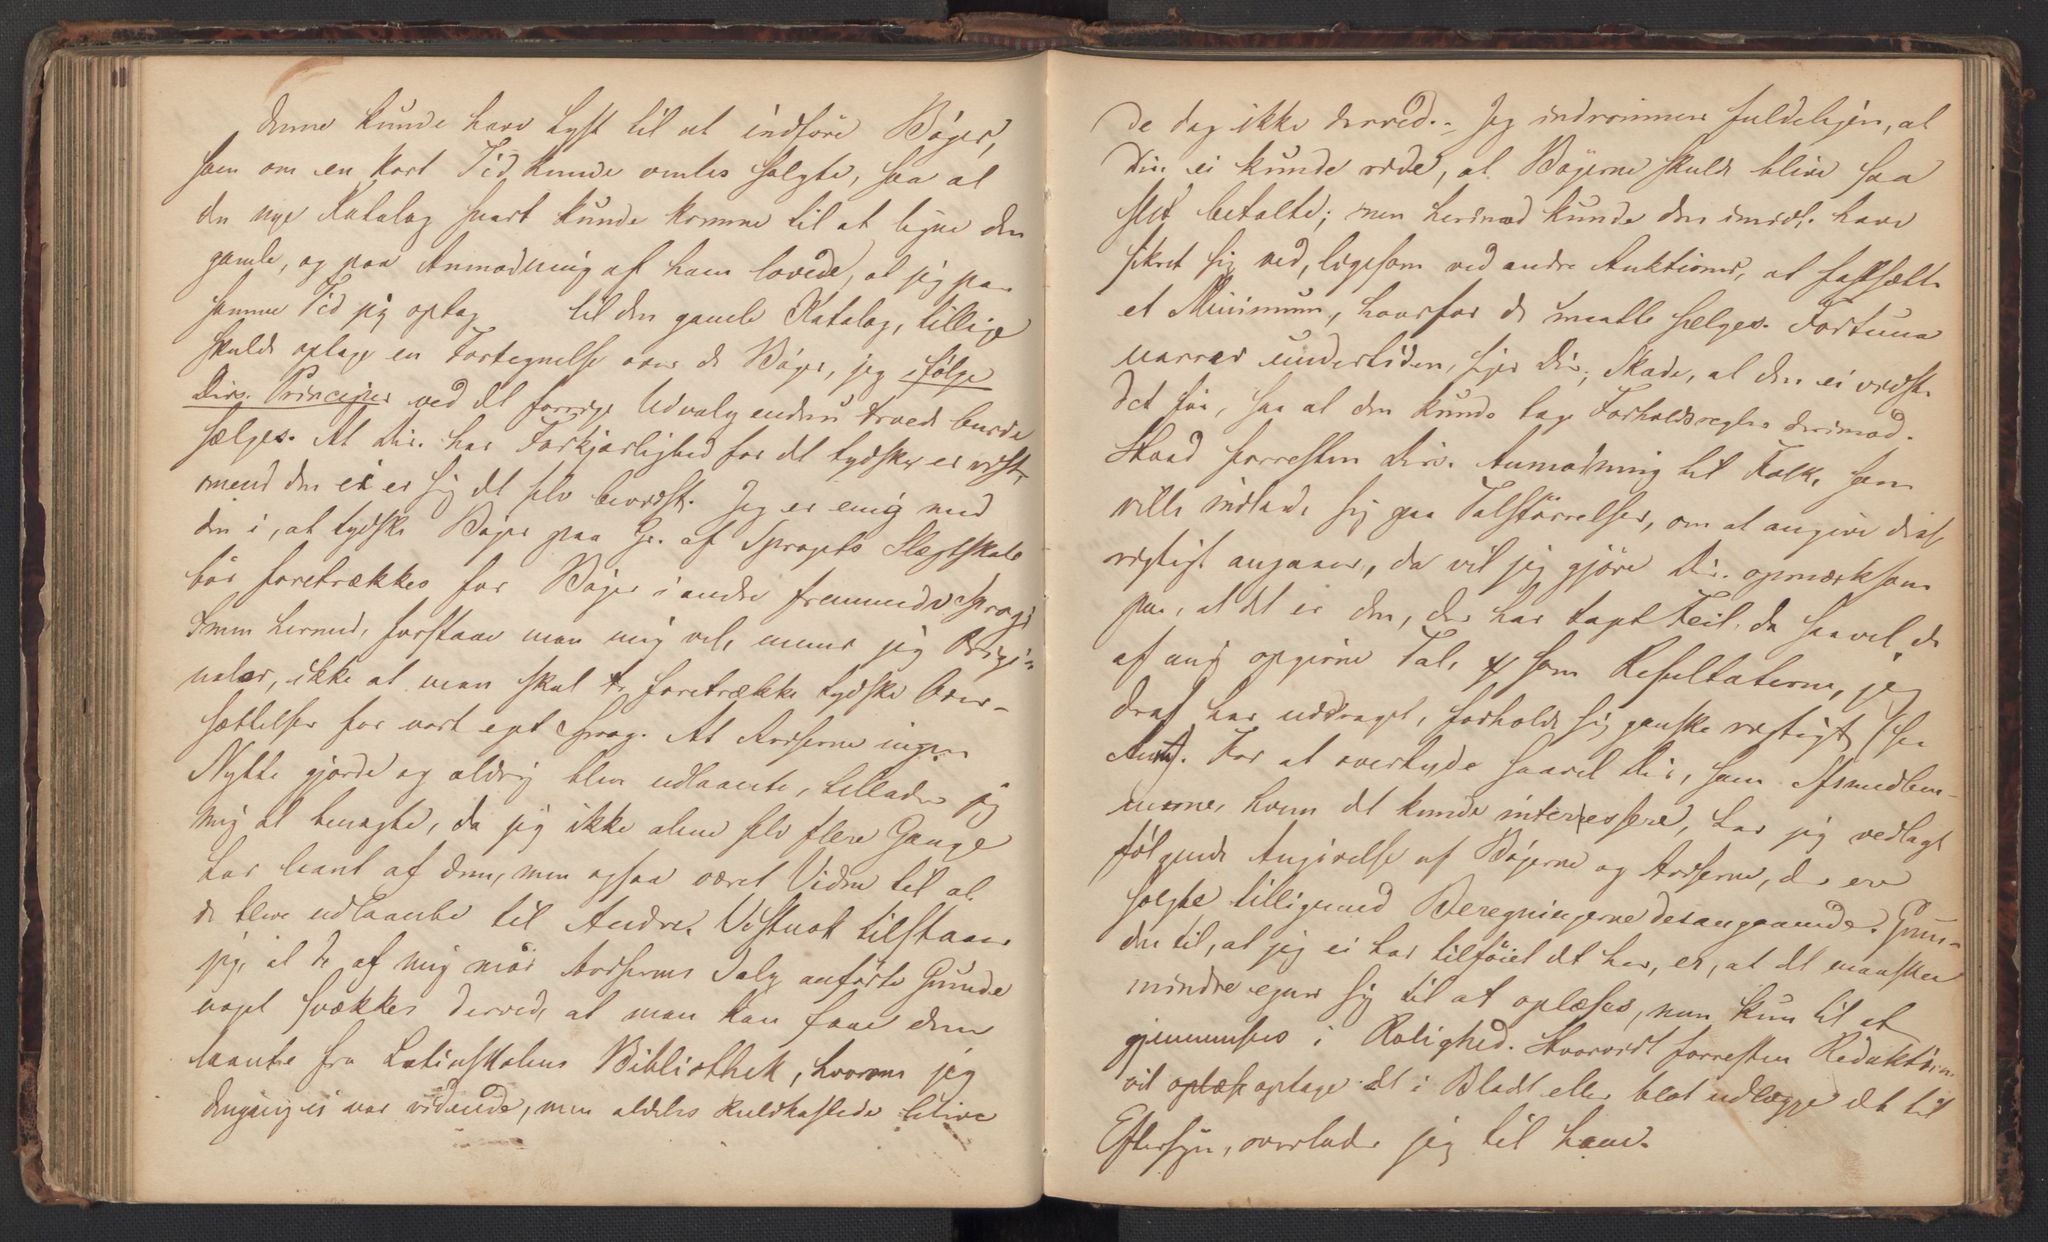 denne kunde have Lyst til at indføre Bøger,
som om en kort Tid kunde ventes solgte, saa at
den nye Katalog snart kunde komme til at ligne den
gamle, og paa Anmodning af ham lovede, at jeg paa
samme Tid jeg optog til den gamle Katalog, tillige
skulde optage en Fortegnelse over de Bøger, jeg ifølge
Dirs. Principer ved det forrige Udvalg endnu troede burde
sælges. At Dir. har Forkjærlighed for det tydske, er vist,
omend den ei er sig det selv bevidst. Jeg er enig med
den i, at tydske Bøger paa Gr. af Sprogets Slægtskab
bør foretrækkes for Bøger i andre fremmede Sprog;
men hermed, forstaae man mig vel, mener jeg Origi-
naler, ikke at man skal foretrække tydske Over-
sættelser for vort eget Sprog. At Aviserne ingen
Nytte gjorde og aldrig blev udlaante, tillader jeg
mig at benægte, da jeg ikke alene selv flere Gange
har laant af dem, men ogsaa været Vidne til at
de bleve udlaante til Andre. Vistnok tilstaaer
jeg, at de af mig mod Avisernes Salg anførte Grunde
noget svækkes derved, at man kan faae dem
laante fra Latinskolens Bibliothek, hvorom jeg
dengang ei var vidende, men aldeles kuldkastede blive
de dog ikke derved. - Jeg indrømmer fuldeligen, at
Dir. ei kunde vide, at Bøgerne skulde blive saa
slet betalte; men herimod kunde den imidl. have
sikret sig ved, ligesom ved andre Auktioner, at fastsætte
et Minimum, hvorfor de maatte sælges. Fortuna
narrer undertiden, siger Dir.; Skade, at den ei vidste
det før, saa at den kunde tage Forholdsregler derimod.
Hvad forresten Dir. Anmodning til Folk, som
ville indlade sig paa Talstørrelser, om at angive dem
rigtigt angaaer, da vil jeg gjøre Dir. opmærksom
paa, at det er den, der har tagt Feil, da saavel de
af mig opgivne Tal, som Resultaterne, jeg
deraf har uddraget, forholde sig ganske rigtigt (see
Anm). For at overtyde saavel Dir., som Sfmedlem-
merne, hvem det kunde interessere, har jeg vedlagt
følgende Angivelse af Bøgerne og Aviserne, der ere
solgte, tilligemed Beregningerne desangaaende. Grun-
den til, at jeg ei har tilføiet det her, er, at det maaskee
mindre egner sig til at oplæses, men kun til at
gjennemsees i Rolighed. Hvorvidt forresten Redaktøren
vil oplæse optage det i Bladet eller blot udlægge det til
Eftersyn, overlader jeg til ham.